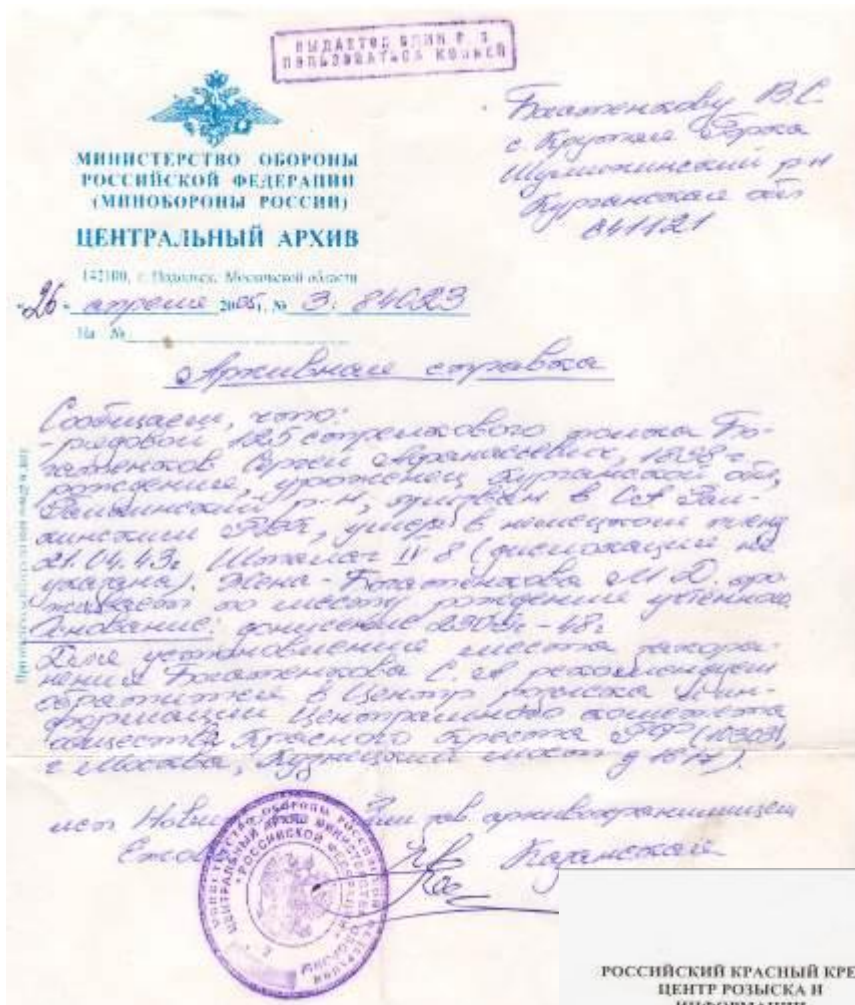 ВЫДАЕТСЯ ОДИН РАЗ
ПОЛЬЗОВАТЬСЯ КОПИЕЙ
Богатенкову В.С.
с Крутая Горка
Шумихинский р-н
Курганская обл
641121
МИНИСТЕРСТВО ОБОРОНЫ
РОССИЙСКОЙ ФЕДЕРАЦИИ
(МИНОБОРОНЫ РОССИИ)
ЦЕНТРАЛЬНЫЙ АРХИВ
142100, г. Подольск, Московской области
«26» апреля 2005 г. № 3. 84023
На №
Архивная справка
Сообщаем, что:
- рядовой 125 стрелкового полка Бо-
гатенков Сергей Афанасьевич, 1898 г
рождения, уроженец Курганской обл,
р-н, призван в СА
РВК, умер в немецком плену
21.04.43г. Шталаг IV В (дислокация не
указана). Жена - Богатенкова М Д. про-
живает по месту рождения учтенного
Основание: донесение -48г
Для установления места захоро-
нения Богатенкова С А рекомендуем
обратиться в Центр розыска и ин-
формации Центрального комитета
общества Красного Креста РФ (103031,
г Москва, Кузнецкий мост д 18/7).
исп зав архивохранилищем
Казанская
МИНИСТЕРСТВО ОБОРОНЫ РОССИЙСКОЙ ФЕДЕРАЦИИ
ЦЕНТРАЛЬНЫЙ АРХИВ МИНИСТЕРСТВА ОБОРОНЫ
РОССИЙСКОЙ ФЕДЕРАЦИИ
РОССИЙСКИЙ КРАСНЫЙ КРЕ
ЦЕНТР РОЗЫСКА И
ИНФОРМАЦИИ